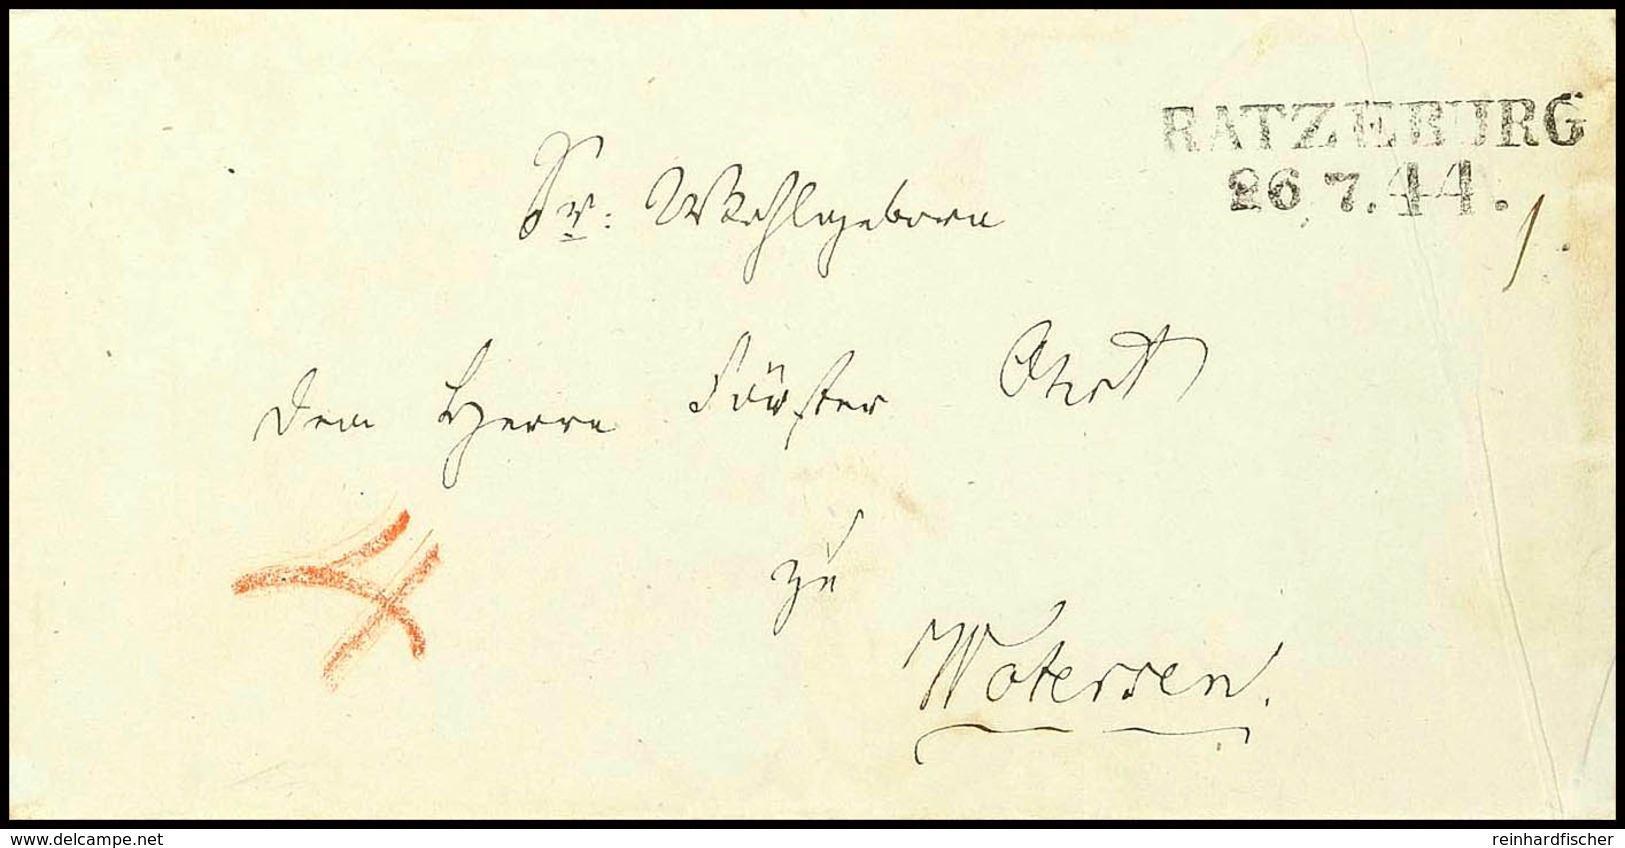 RATZEBURG
26 7.44.
Sr: Wohlgeborn
dem Herrn Förster
zu
Wotersen.
delcampe.net
reinhardfischer